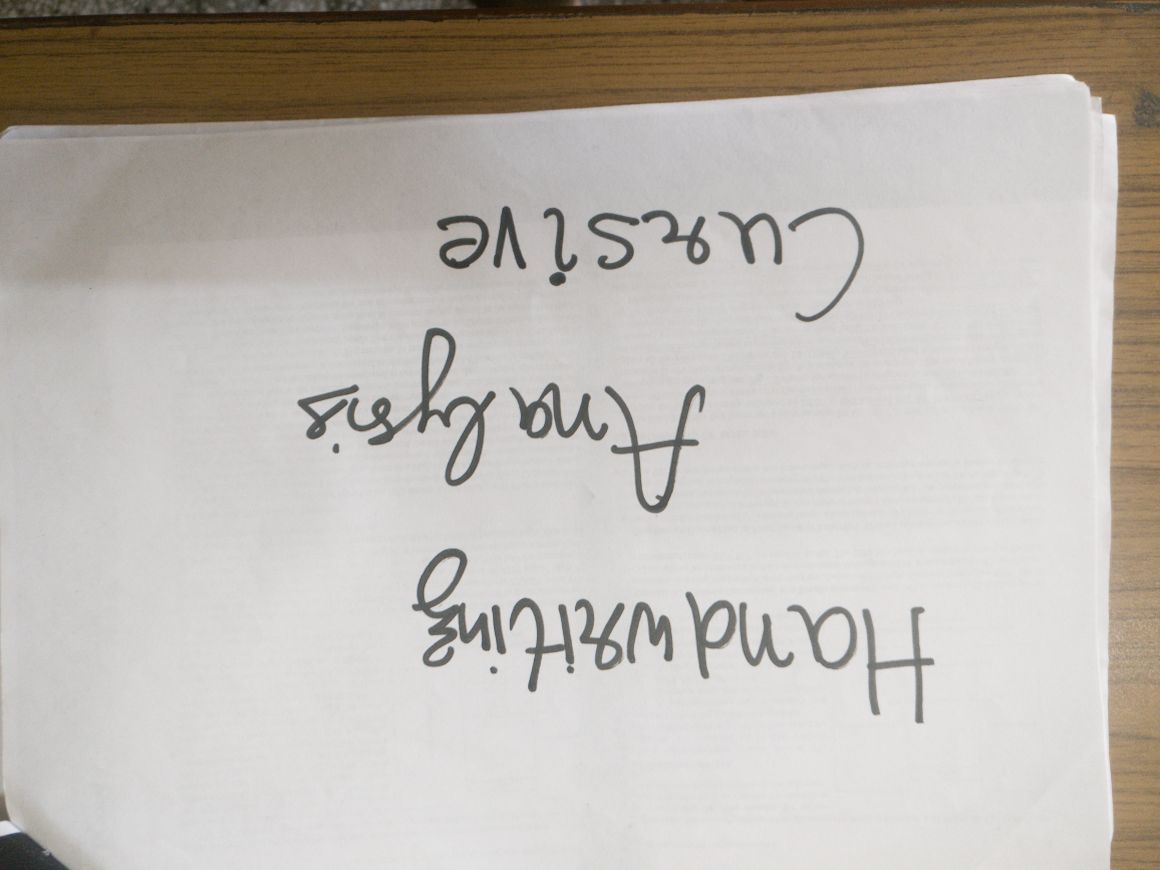 Handwriting
Analysis
Cursive